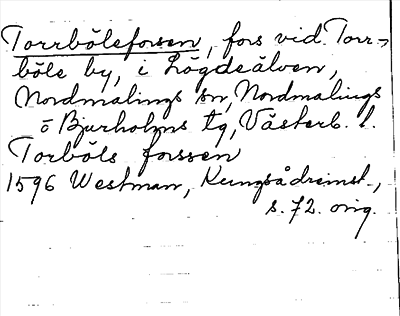 Torrböleforsen, fors vid Torr-
böle by, i Lögdeälven,
Nordmalings sn, Nordmalings
o Bjurholms tg, Västerb. l.
Torböls forssen
1596 Westman, Kungsådreinst.,
s. 72. orig.